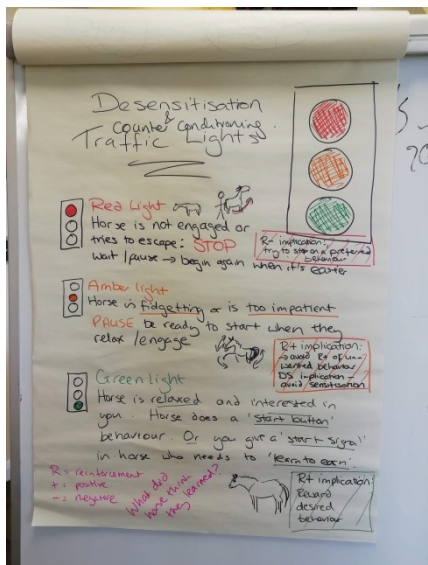 Desensitisation
& counter conditioning
Traffic Lights
Red Light
Horse is not engaged or
tries to escape: STOP
wait / pause → begin again when it's easier
R- implication:
try to stop on a preferred
behaviour
Amber light
Horse is fidgetting or is too impatient
PAUSE be ready to start when they
relax / engage
R+ implication:
→ avoid R+ of un-
wanted behaviour
DS implication -
avoid sensitisation
Green light
Horse is relaxed and interested in
you. Horse does a 'start button'
behaviour. Or you give a 'start signal'
in horse who needs to 'learn to earn'.
R = reinforcement
+ = positive
- = negative
What did
horse think
they learned?
R+ implication:
Reward
desired
behaviour